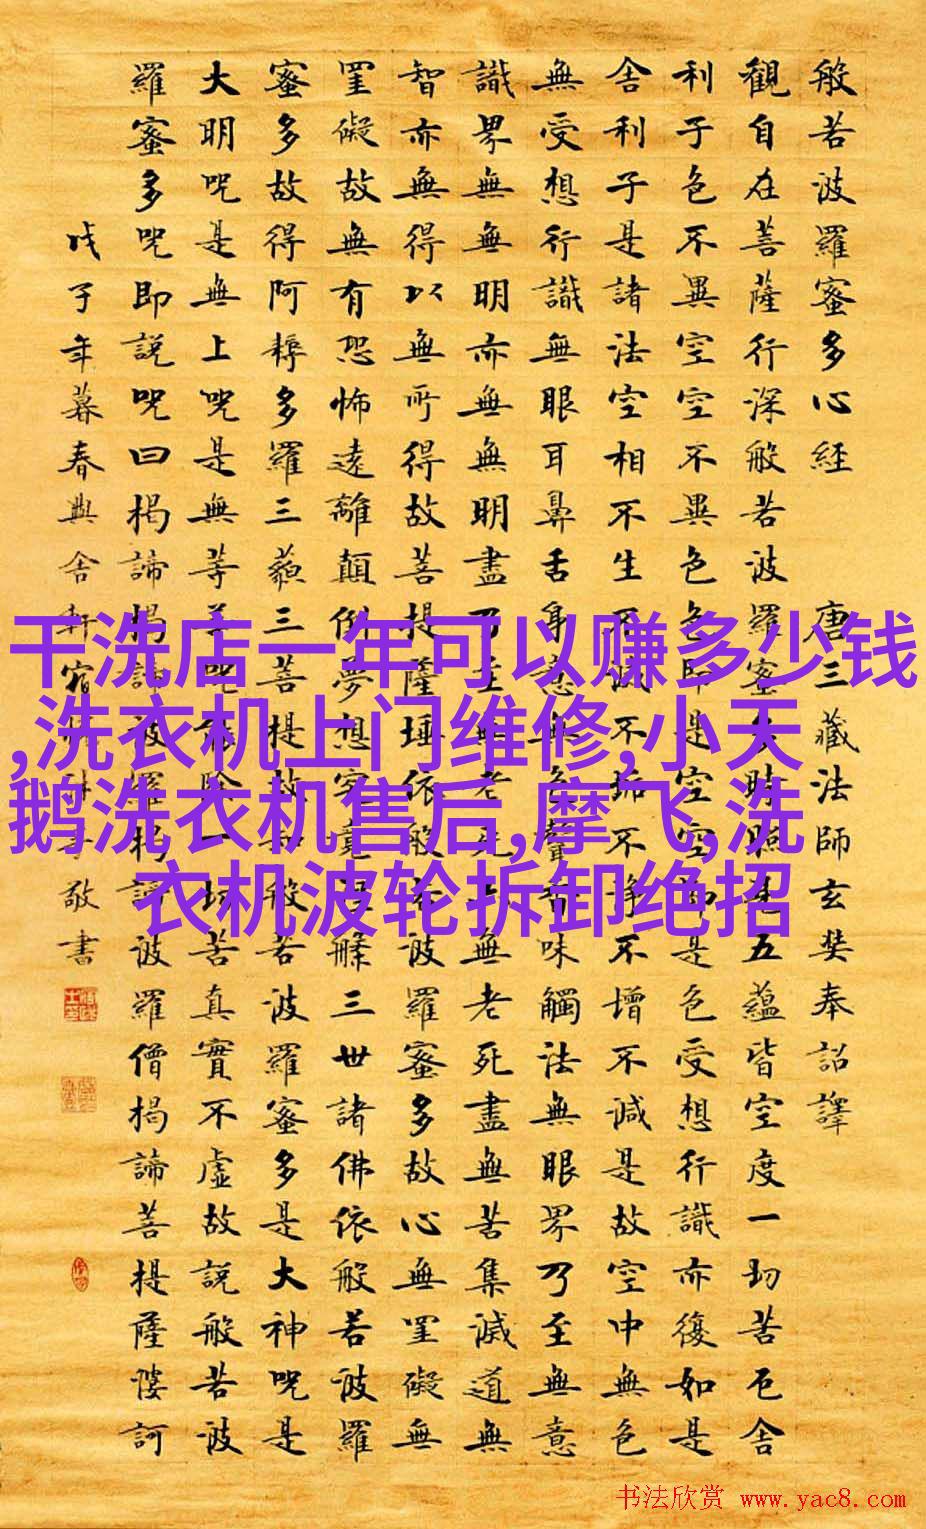 般若波羅蜜多心経 唐三藏法師玄奘奉詔譯
觀自在菩薩行深般若波羅蜜多時照見五蘊皆空度一切苦厄舍
利子色不異空空不異色色即是空空即是色受想行識亦復如是
舍利子是諸法空相不生不滅不垢不淨不增不減是故空中無色
無受想行識無眼耳鼻舌身意無色聲香味觸法無眼界乃至無意
識界無無明亦無無明盡乃至無老死亦無老死盡無苦集滅道無
智亦無得以無所得故菩提薩埵依般若波羅蜜多故心無罣礙無
罣礙故無有恐怖遠離顛倒夢想究竟涅槃三世諸佛依般若波羅
蜜多故得阿耨多羅三藐三菩提故知般若波羅蜜多是大神咒是
大明咒是無上咒是無等等咒能除一切苦真實不虛故說般若波
羅蜜多咒即說咒曰揭諦揭諦波羅揭諦波羅僧揭諦菩提薩婆訶
戊子年暮春典舍軒宿耕子敬書
干洗店一年可以赚多少钱
,洗衣机上门维修,小天
鹅洗衣机售后,摩飞,洗
衣机波轮拆卸绝招
书法欣赏 www.yac8.com